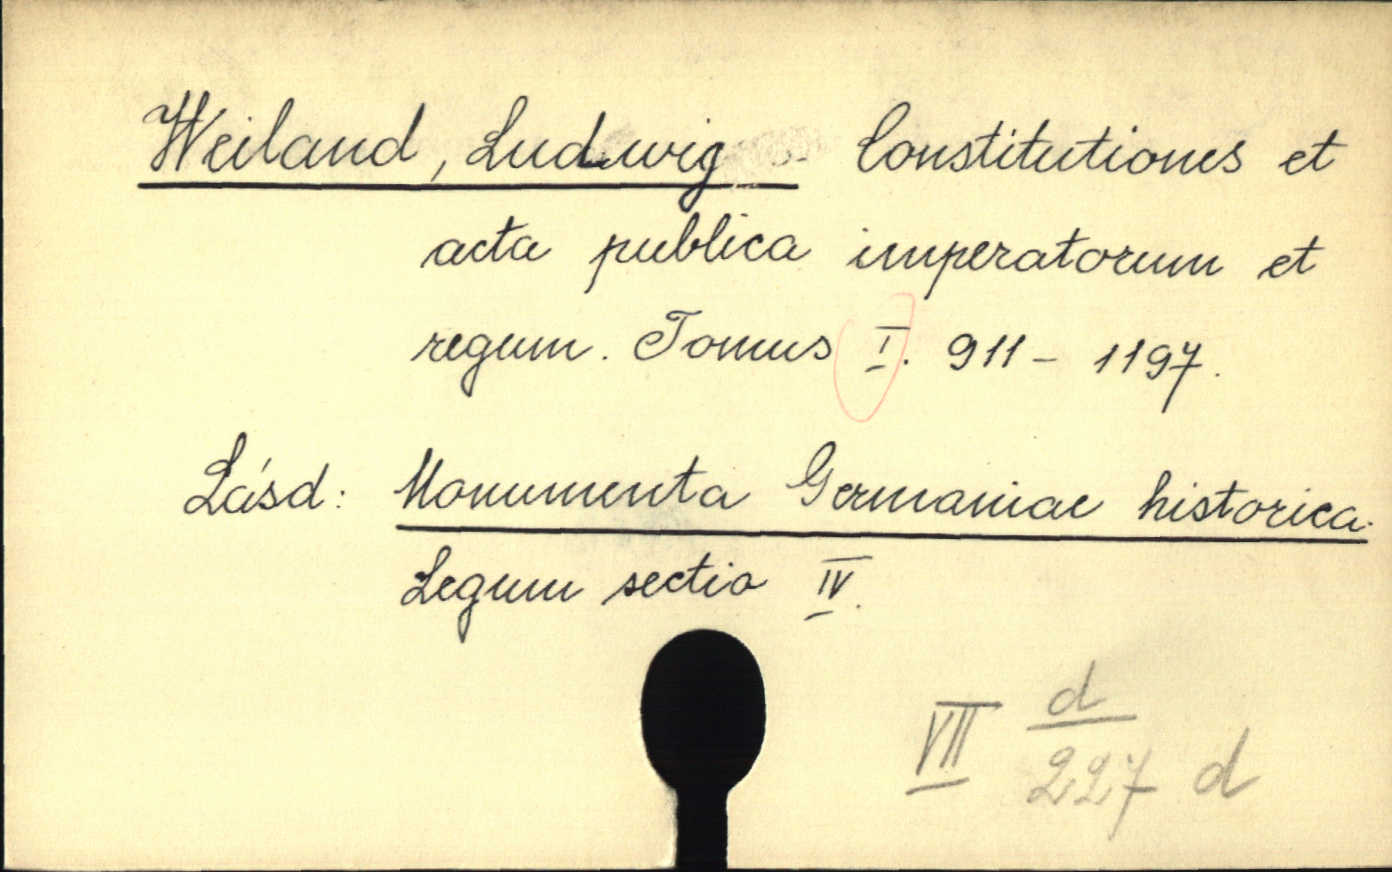 Weiland, Ludwig Constitutiones et
acta publica imperatorum et
regum. Tomus I. 911 - 1197.
Lásd: Monumenta Germaniae historica.
Legum sectio IV.
VII d/227 d